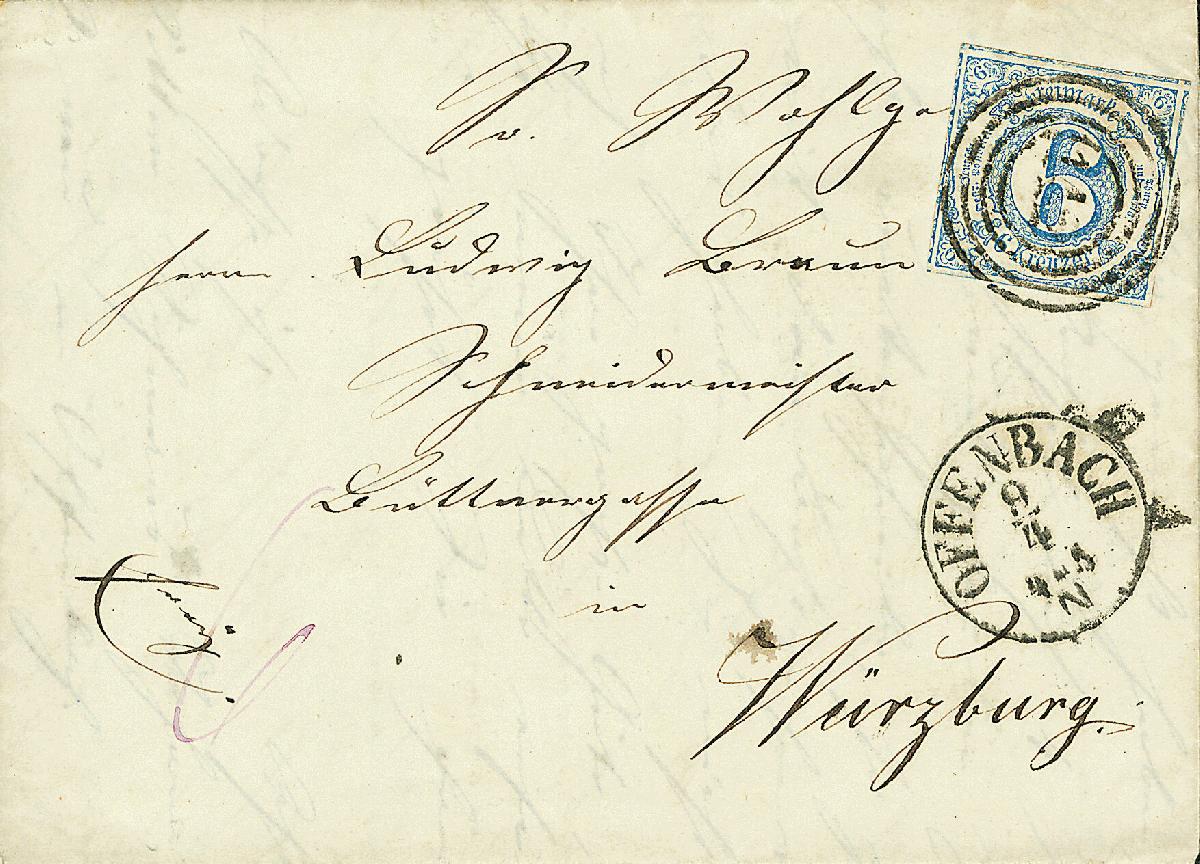 Sr. Wohlge
Herrn Ludwig Braun
Schneidermeister
Büttnergasse
in
Würzburg.
franco.
6
Freimarke
6
Kreuzer
OFFENBACH
9
4
4-5
N